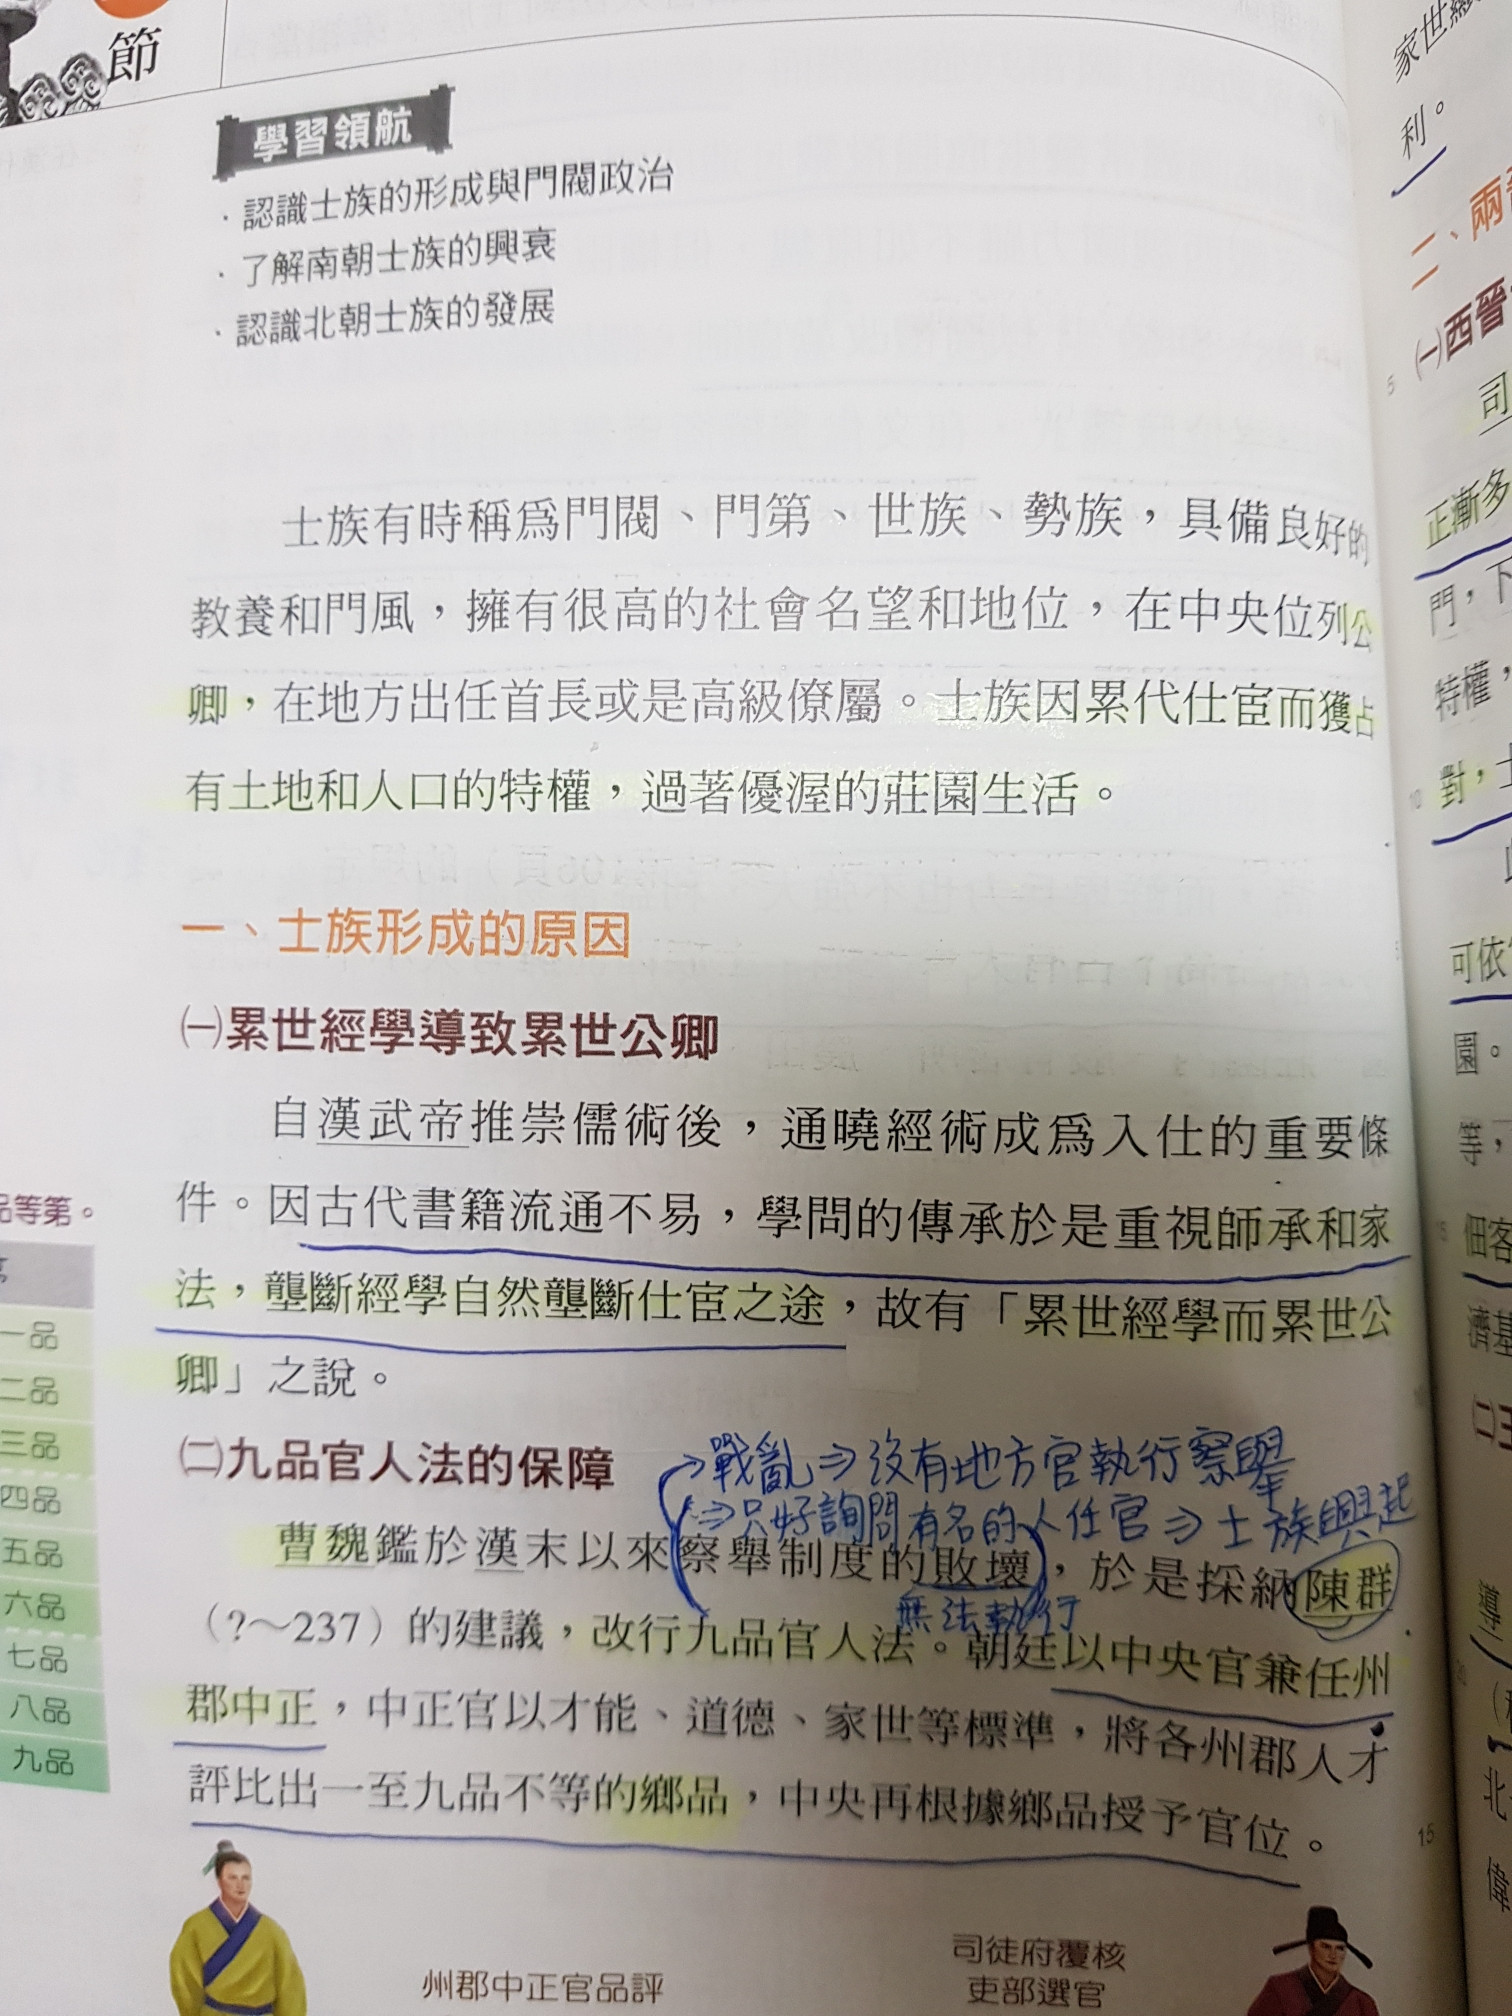 節
學習領航
．認識士族的形成與門閥政治
．了解南朝士族的興衰
．認識北朝士族的發展
士族有時稱為門閥、門第、世族、勢族，具備良好的
教養和門風，擁有很高的社會名望和地位，在中央位列公
卿，在地方出任首長或是高級僚屬。士族因累代仕宦而獲占
有土地和人口的特權，過著優渥的莊園生活。
一、士族形成的原因
㈠累世經學導致累世公卿
自漢武帝推崇儒術後，通曉經術成為入仕的重要條
件。因古代書籍流通不易，學問的傳承於是重視師承和家
法，壟斷經學自然壟斷仕宦之途，故有「累世經學而累世公
卿」之說。
㈡九品官人法的保障
→戰亂⇒沒有地方官執行察舉
⇒只好詢問有名的人任官⇒士族興起
曹魏鑑於漢末以來察舉制度的敗壞，於是採納陳群
無法執行
（?～237）的建議，改行九品官人法。朝廷以中央官兼任州
郡中正，中正官以才能、道德、家世等標準，將各州郡人才
評比出一至九品不等的鄉品，中央再根據鄉品授予官位。
州郡中正官品評
司徒府覆核
吏部選官
品等第。
一品
二品
三品
四品
五品
六品
七品
八品
九品
家世
利。
二、兩
㈠西晉
司
正漸多
門，下
特權，
對，
可依
園。
等，
佃客
濟基
㈡
導
北
偉
5
10
15
20
15